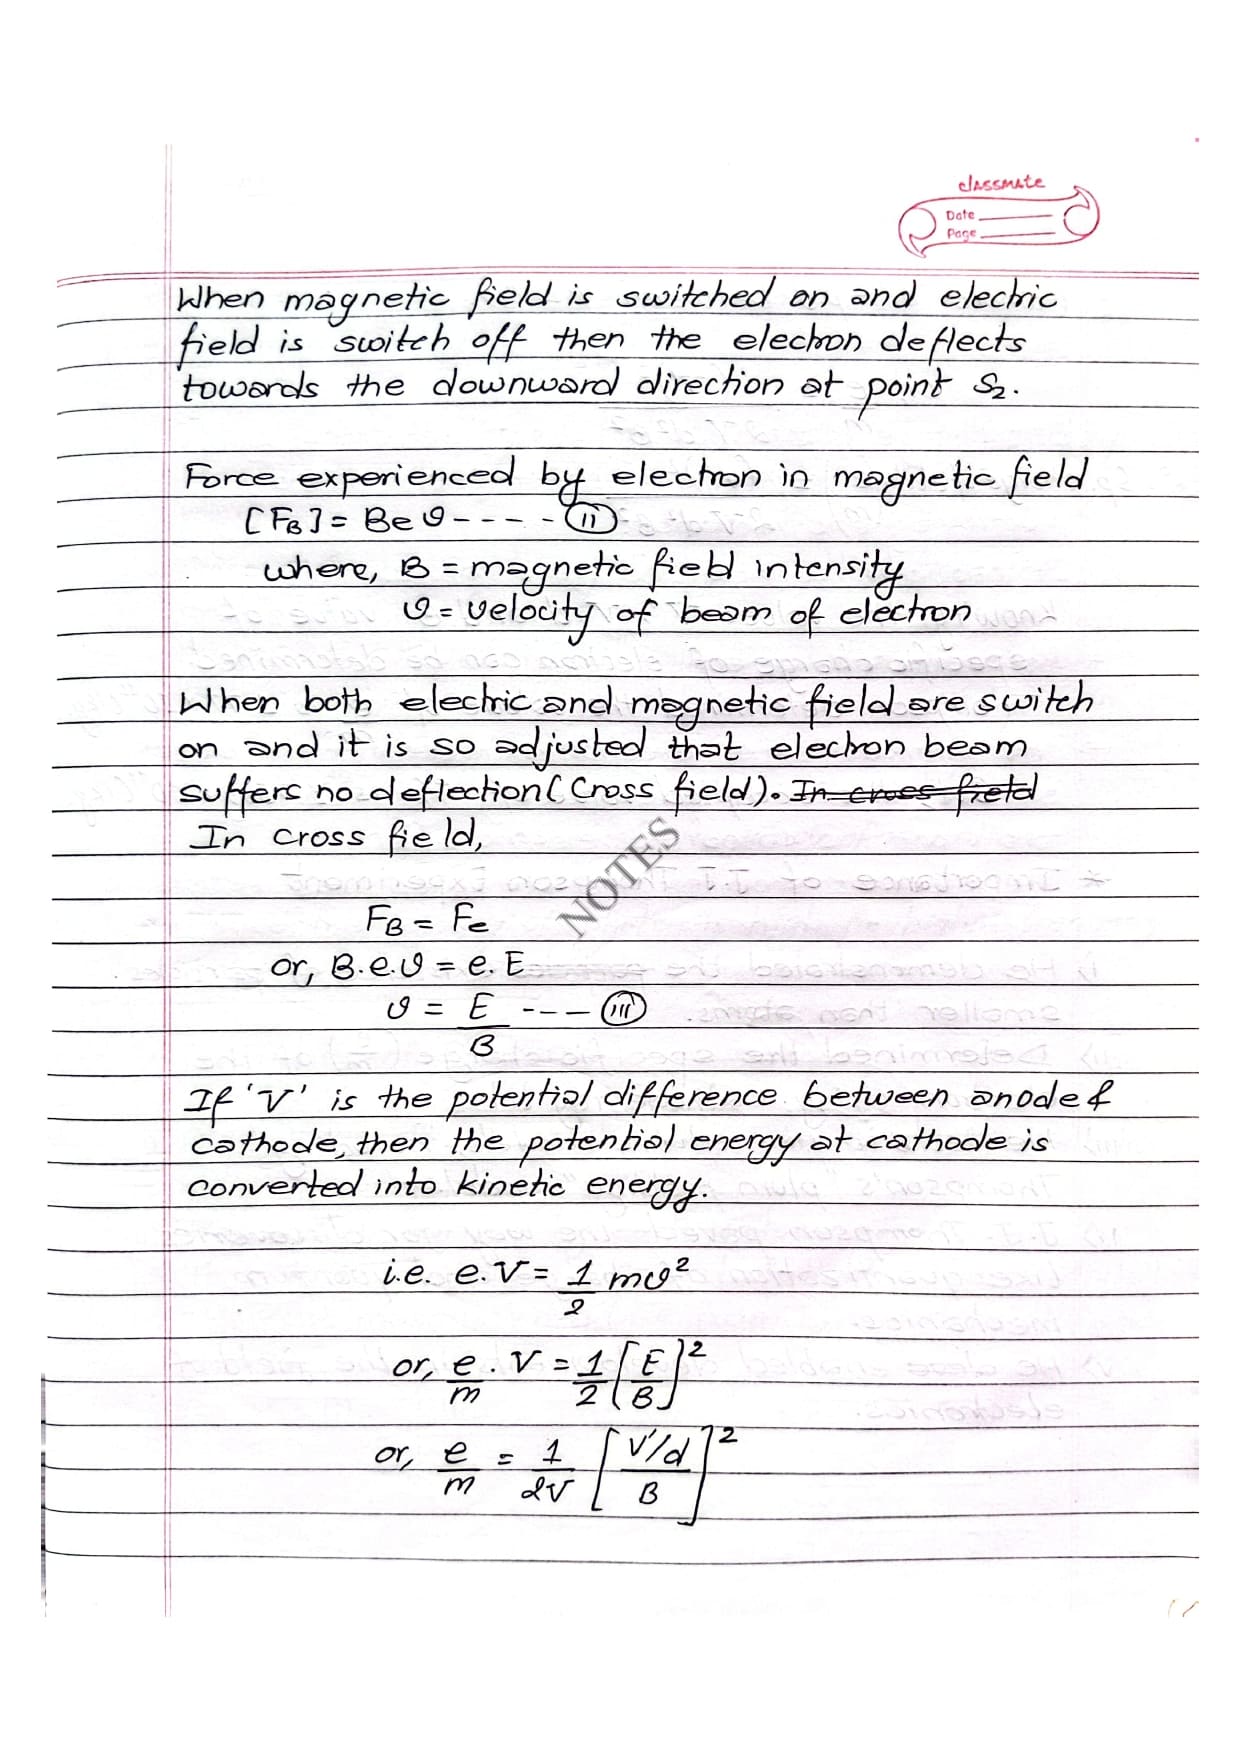 classmate
Date
Page
When magnetic field is switched on and electric
field is switch off then the electron deflects
towards the downward direction at point S₂.
Force experienced by electron in magnetic field
[F_B] = Beϑ - - - - - (ii)
where, B = magnetic field intensity
ϑ = velocity of beam of electron
When both electric and magnetic field are switch
on and it is so adjusted that electron beam
suffers no deflection (Cross field). ~~In cross field~~
In cross field,
NOTES
F_B = F_e
or, B.e.ϑ = e.E
ϑ = E/B - - - - (iii)
If 'V' is the potential difference between anode &
cathode, then the potential energy at cathode is
converted into kinetic energy.
i.e. e.V = 1/2 mϑ²
or, e/m . V = 1/2 [E/B]²
or, e/m = 1/2V [V'/d / B]²